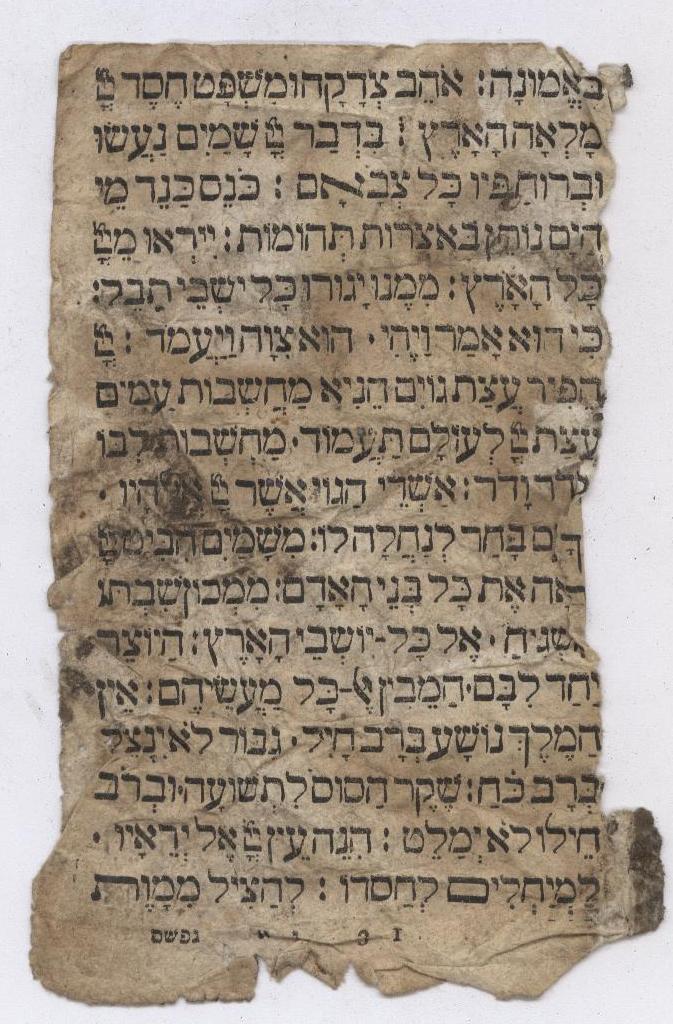 באמונה: אהב צדקה ומשפט חסד
מלאה הארץ: בדבר שמים נעשו
וברוח פיו כל צבאם: כנס כנד מי
הים נותן באצרות תהומות: ייראו
כל הארץ: ממנו יגורו כל ישבי תבל:
כי הוא אמר ויהי. הוא צוה ויעמד:
הפיר עצת גוים הניא מחשבות עמים
עצת לעולם תעמוד. מחשבות לבו
לדר ודר: אשרי הגוי אשר אלהיו.
בחר לנחלה לו: משמים הביט
את כל בני האדם: ממכון שבתו
השגיח. אל כל-יושבי הארץ: היוצר
יחד לבם. המבין אל-כל מעשיהם: אין
המלך נושע ברב חיל. גבור לא ינצל
ברב כח: שקר הסוס לתשועה. וברב
חילו לא ימלט: הנה עין אל יראיו.
למיחלים לחסדו: להציל ממות
נפשם